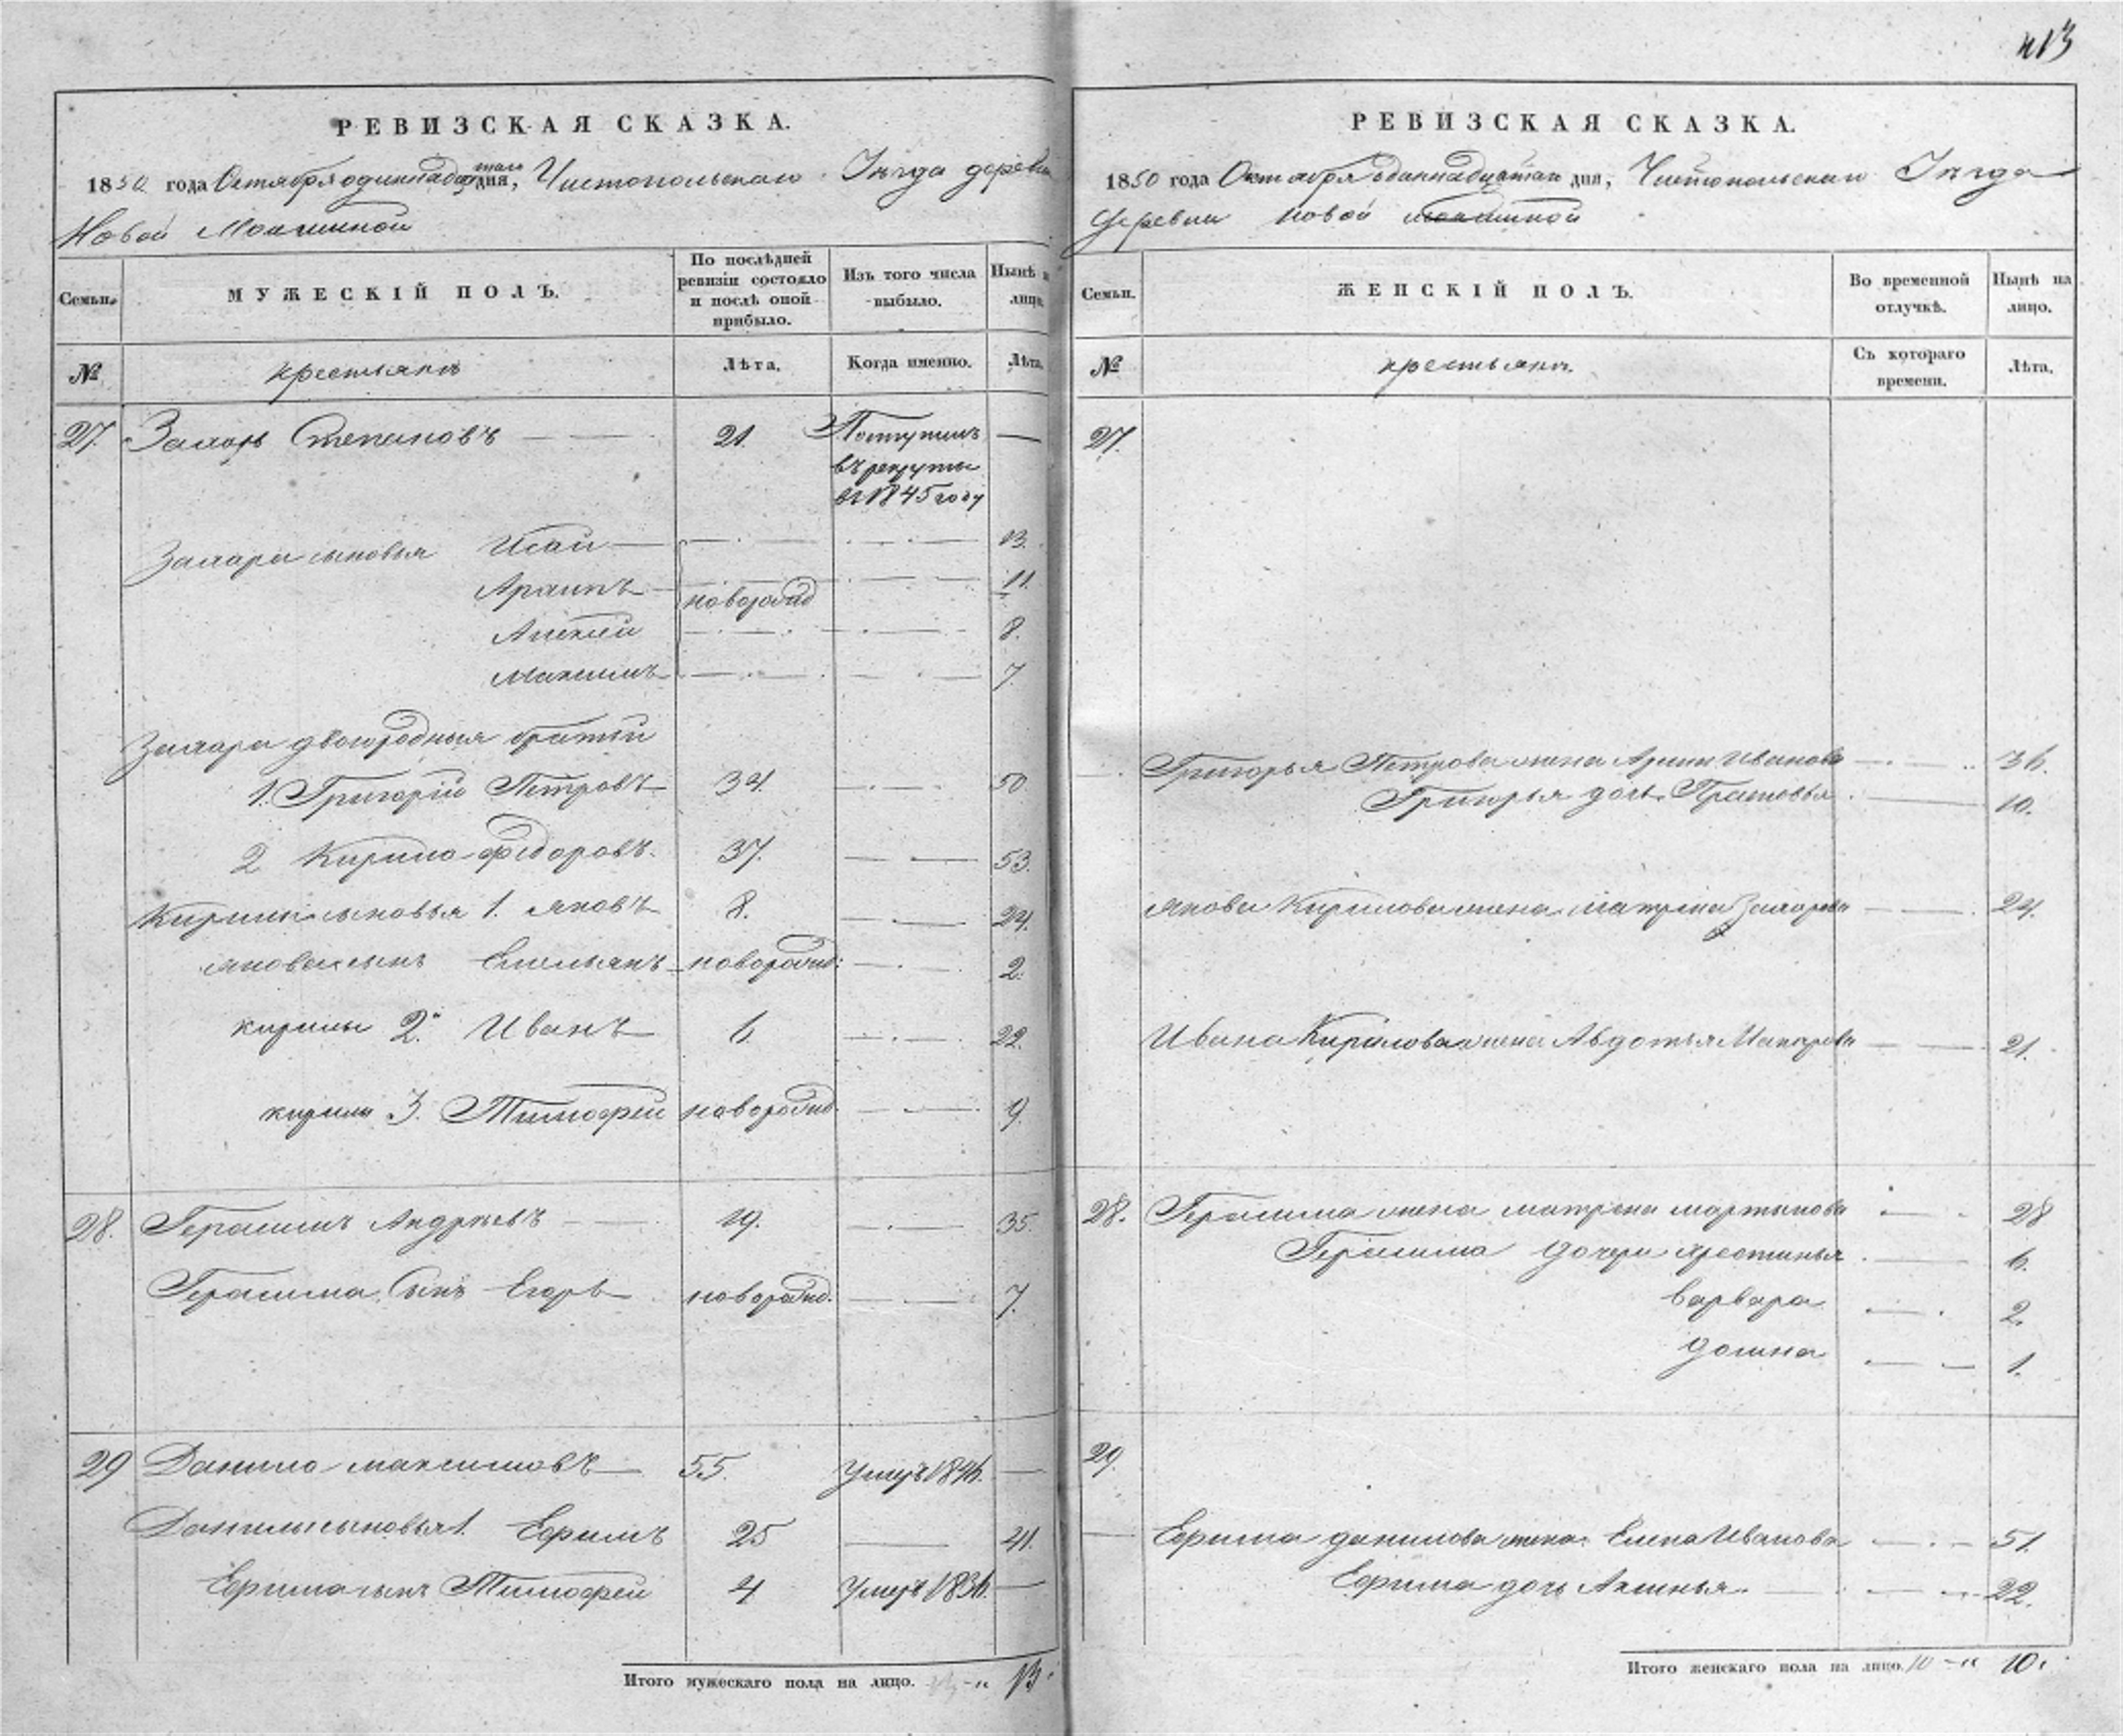 413
РЕВИЗСКАЯ СКАЗКА.
1850 года Октября одиннадцатаго дня, Чистопольскаго Уѣзда деревни
Новой
Семьи.
МУЖЕСКІЙ ПОЛЪ.
По послѣдней ревизіи состояло и послѣ оной прибыло.
Изъ того числа выбыло.
Нынѣ на лицо.
№
крестьянъ
Лѣта.
Когда именно.
Лѣта.
27. Захаръ Степановъ 21. Поступилъ —
въ рекруты
въ 1845 году
Захара сыновья Исай 13.
Архипъ новорожд 11.
Алексѣй 8.
Максимъ 7.
Захара двоюродныя братьи
1. Григорій Петровъ 34. 50.
2 Кирило Федоровъ. 37. 53.
Кирилы сыновья 1. Яковъ 8. 24.
Якова сынъ Емельянъ новорожд: 2.
Кирилы 2й Иванъ 6. 22.
Кирилы 3. Тимофей новорожд. 9.
28. Герасимъ Андреевъ 19. 35.
Герасима Сынъ Егоръ новорожд. 7.
29 Данило Максимовъ 55. умеръ 1846. —
Данилы сыновья 1. Ефимъ 25 41.
Ефима сынъ Тимофей 4 умеръ 1836. —
Итого мужескаго пола на лицо. 13.
РЕВИЗСКАЯ СКАЗКА.
1850 года Октября одиннадцатаго дня, Чистопольскаго Уѣзда
деревни новой
Семьи.
ЖЕНСКІЙ ПОЛЪ.
Во временной отлучкѣ.
Нынѣ на лицо.
№
крестьянъ.
Съ котораго времени.
Лѣта.
27.
Григорья Петрова жена Арина Иванова 36.
Григорья дочь Прасковья 10.
Якова Кирилова жена Матрена Захарова 24.
Ивана Кирилова жена Авдотья Макарова 21.
28. Герасима жена Матрена Мартынова 28
Герасима дочери Хрестинья 6.
Варвара 2.
Домна 1.
29.
Ефима Данилова жена Елена Иванова 51.
Ефима дочь Акинья. 22.
Итого женскаго пола на лицо. 10 10.